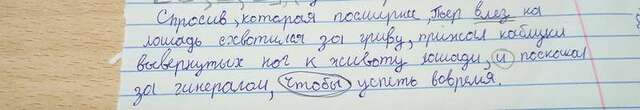 Спросив, которая посмирнее, Пьер влез на
лошадь схватился за гриву, прижал каблуки
вывернутых ног к животу лошади, и поскакал
за генералом, чтобы успеть вовремя.